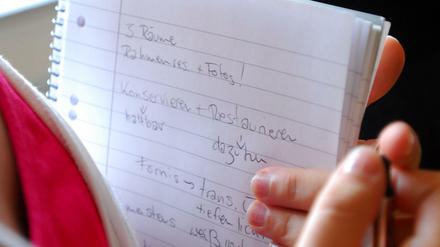 3 Räume
Rahmenres + Fotos!
Konservieren + Restaurieren
haltbar
dazutun
Fornis → trans.
tiefenlicht
meistens weiß